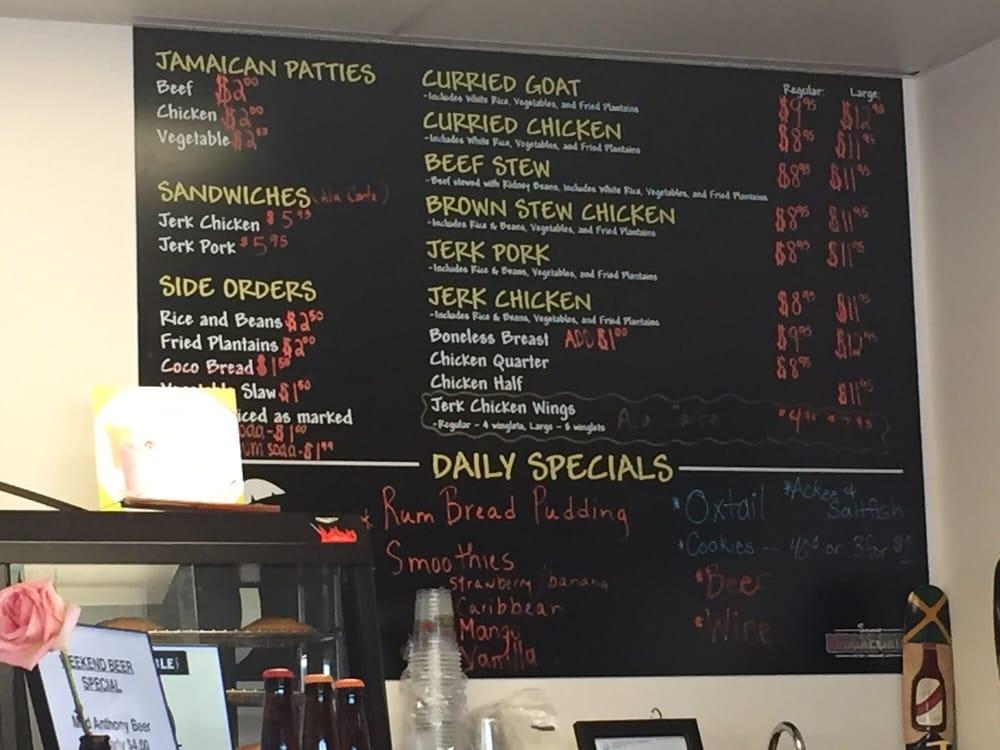 JAMAICAN PATTIES
Beef $2.00
Chicken $2.00
Vegetable
SANDWICHES (Ala Carte)
Jerk Chicken $5.95
Jerk Pork $5.95
SIDE ORDERS
Rice and Beans $2.50
Fried Plantains $2.00
Coco Bread $1.50
Slaw $1.50
iced as marked
oda-$1.00
um soda-$1.99
Regular: Large:
CURRIED GOAT $9.95 $12.95
-Includes White Rice, Vegetables, and Fried Plantains
CURRIED CHICKEN $8.95 $11.95
-Includes White Rice, Vegetables, and Fried Plantains
BEEF STEW $8.95 $11.95
-Beef stewed with Kidney Beans, includes White Rice, Vegetables, and Fried Plantains
BROWN STEW CHICKEN $8.95 $11.95
-Includes Rice & Beans, Vegetables, and Fried Plantains
JERK PORK $8.95 $11.95
-Includes Rice & Beans, Vegetables, and Fried Plantains
JERK CHICKEN $8.95 $11.95
-Includes Rice & Beans, Vegetables, and Fried Plantains
Boneless Breast ADD $1.00 $9.95 $12.95
Chicken Quarter $8.95
Chicken Half $11.95
Jerk Chicken Wings Ala Carte $4.95 $7.95
-Regular - 4 winglets, Large - 8 winglets
DAILY SPECIALS
* Rum Bread Pudding
Smoothies
- Strawberry/banana
Caribbean
Mango
Vanilla
*Oxtail
*Ackee & Saltfish
*Cookies - 40¢ or 3 for $1
*Beer
*Wine
EEKEND BEER
SPECIAL
Mad Anthony Beer
$4.00
BLE